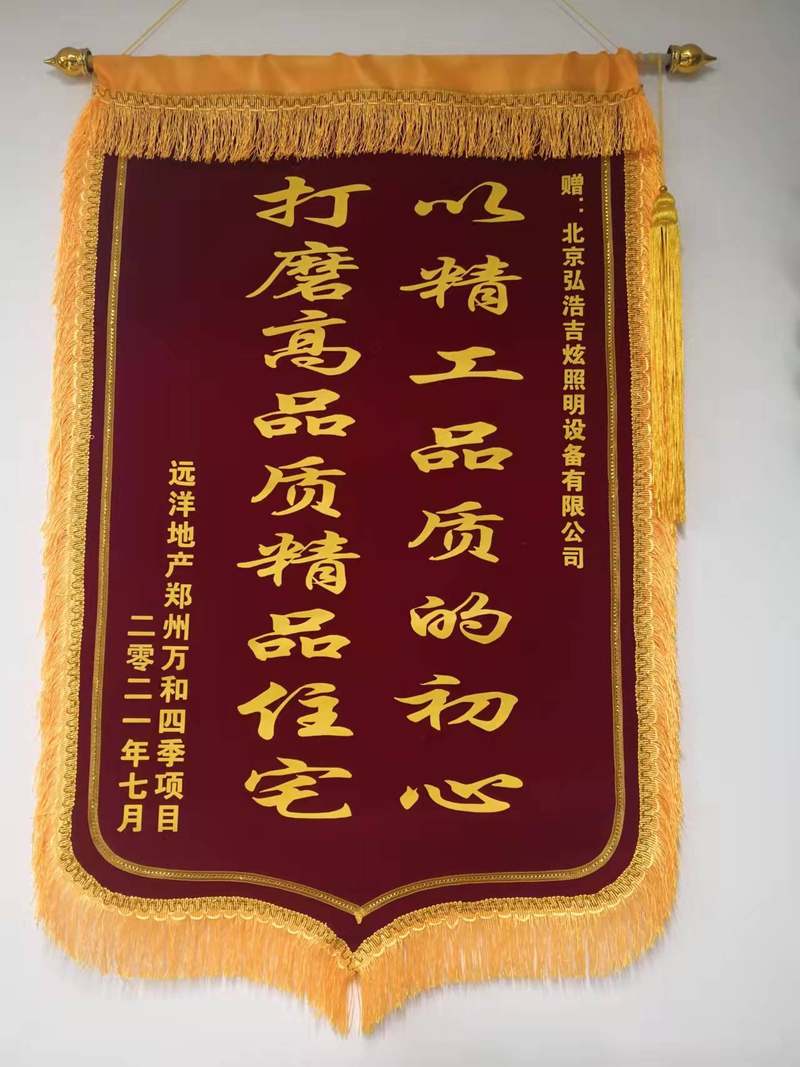 赠：北京弘浩吉炫照明设备有限公司
以精工品质的初心
打磨高品质精品住宅
远洋地产郑州万和四季项目
二零二一年七月